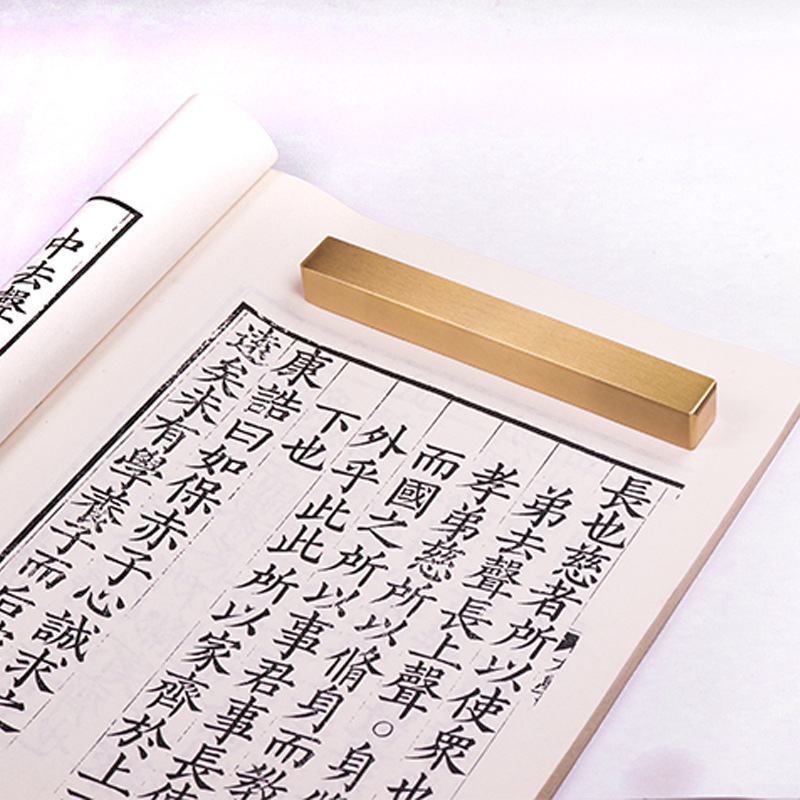 長也慈者所以使衆也
弟去聲長上聲。身
孝弟慈所以脩身而教
而國之所以事君事長使
外乎此此所以家齊於上
下也
康誥曰如保赤子心誠求之
遠矣未有學養子而后
中去聲